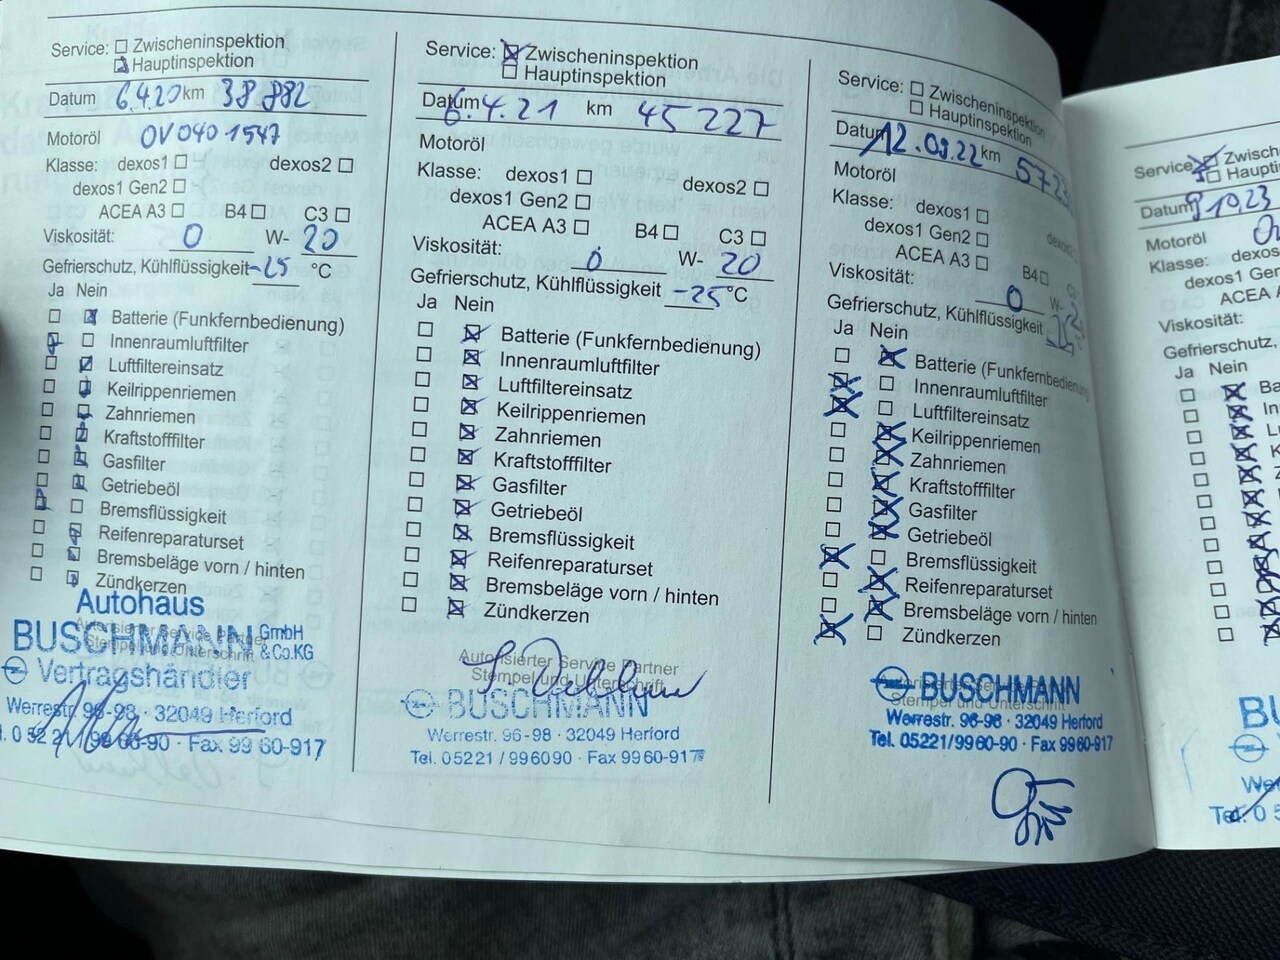 Service: Zwischeninspektion
Hauptinspektion
Datum 6.4.20 km 38 882
Motoröl OV 040 1547
Klasse: dexos1 dexos2
dexos1 Gen2
ACEA A3 B4 C3
Viskosität: 0 W- 20
Gefrierschutz, Kühlflüssigkeit -25 °C
Ja Nein
Batterie (Funkfernbedienung)
Innenraumluftfilter
Luftfiltereinsatz
Keilrippenriemen
Zahnriemen
Kraftstofffilter
Gasfilter
Getriebeöl
Bremsflüssigkeit
Reifenreparaturset
Bremsbeläge vorn / hinten
Zündkerzen
Autorisierter Service Partner
Stempel und Unterschrift
Autohaus
BUSCHMANN GmbH & Co.KG
Vertragshändler
Werrestr. 96-98 · 32049 Herford
Fax 99 60-917
Service: Zwischeninspektion
Hauptinspektion
Datum 6.4.21 km 45 227
Motoröl
Klasse: dexos1 dexos2
dexos1 Gen2
ACEA A3 B4 C3
Viskosität: 0 W- 20
Gefrierschutz, Kühlflüssigkeit -25 °C
Ja Nein
Batterie (Funkfernbedienung)
Innenraumluftfilter
Luftfiltereinsatz
Keilrippenriemen
Zahnriemen
Kraftstofffilter
Gasfilter
Getriebeöl
Bremsflüssigkeit
Reifenreparaturset
Bremsbeläge vorn / hinten
Zündkerzen
Autorisierter Service Partner
Stempel und Unterschrift
BUSCHMANN
Werrestr. 96-98 · 32049 Herford
Tel. 05221 / 996090 · Fax 9960-917
Service: Zwischeninspektion
Hauptinspektion
Datum 12.09.22 km
Motoröl
Klasse: dexos1
dexos1 Gen2
ACEA A3 B4
Viskosität: 0 W-
Gefrierschutz, Kühlflüssigkeit
Ja Nein
Batterie (Funkfernbedienung
Innenraumluftfilter
Luftfiltereinsatz
Keilrippenriemen
Zahnriemen
Kraftstofffilter
Gasfilter
Getriebeöl
Bremsflüssigkeit
Reifenreparaturset
Bremsbeläge vorn / hinten
Zündkerzen
Stempel und Unterschrift
BUSCHMANN
Werrestr. 96-98 · 32049 Herford
Tel. 05221/9960-90 · Fax 9960-917
Service: Zwisc
Haupti
Datum 9.10.23
Motoröl
Klasse: dexos
dexos1 Gen
ACEA A
Viskosität:
Gefrierschutz, Kühlflü
Ja Nein
Ba
In